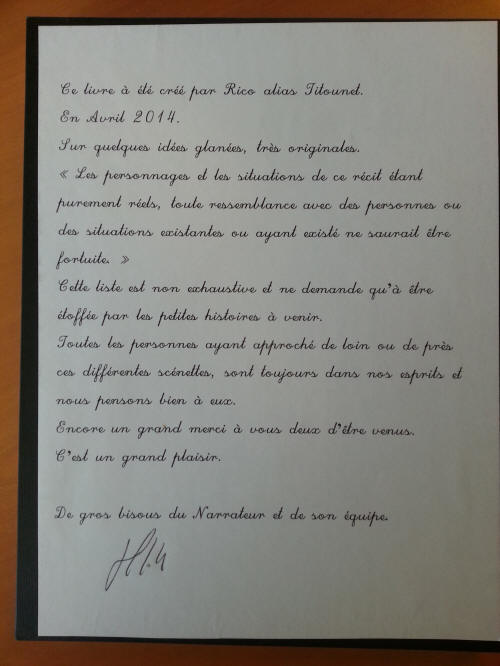 Ce livre à été créé par Rico alias Titounet.
En Avril 2014.
Sur quelques idées glanées, très originales.
« Les personnages et les situations de ce récit étant
purement réels, toute ressemblance avec des personnes ou
des situations existantes ou ayant existé ne saurait être
fortuite. »
Cette liste est non exhaustive et ne demande qu'à être
étoffée par les petites histoires à venir.
Toutes les personnes ayant approché de loin ou de près
ces différentes scénettes, sont toujours dans nos esprits et
nous pensons bien à eux.
Encore un grand merci à vous deux d'être venus.
C'est un grand plaisir.
De gros bisous du Narrateur et de son équipe.